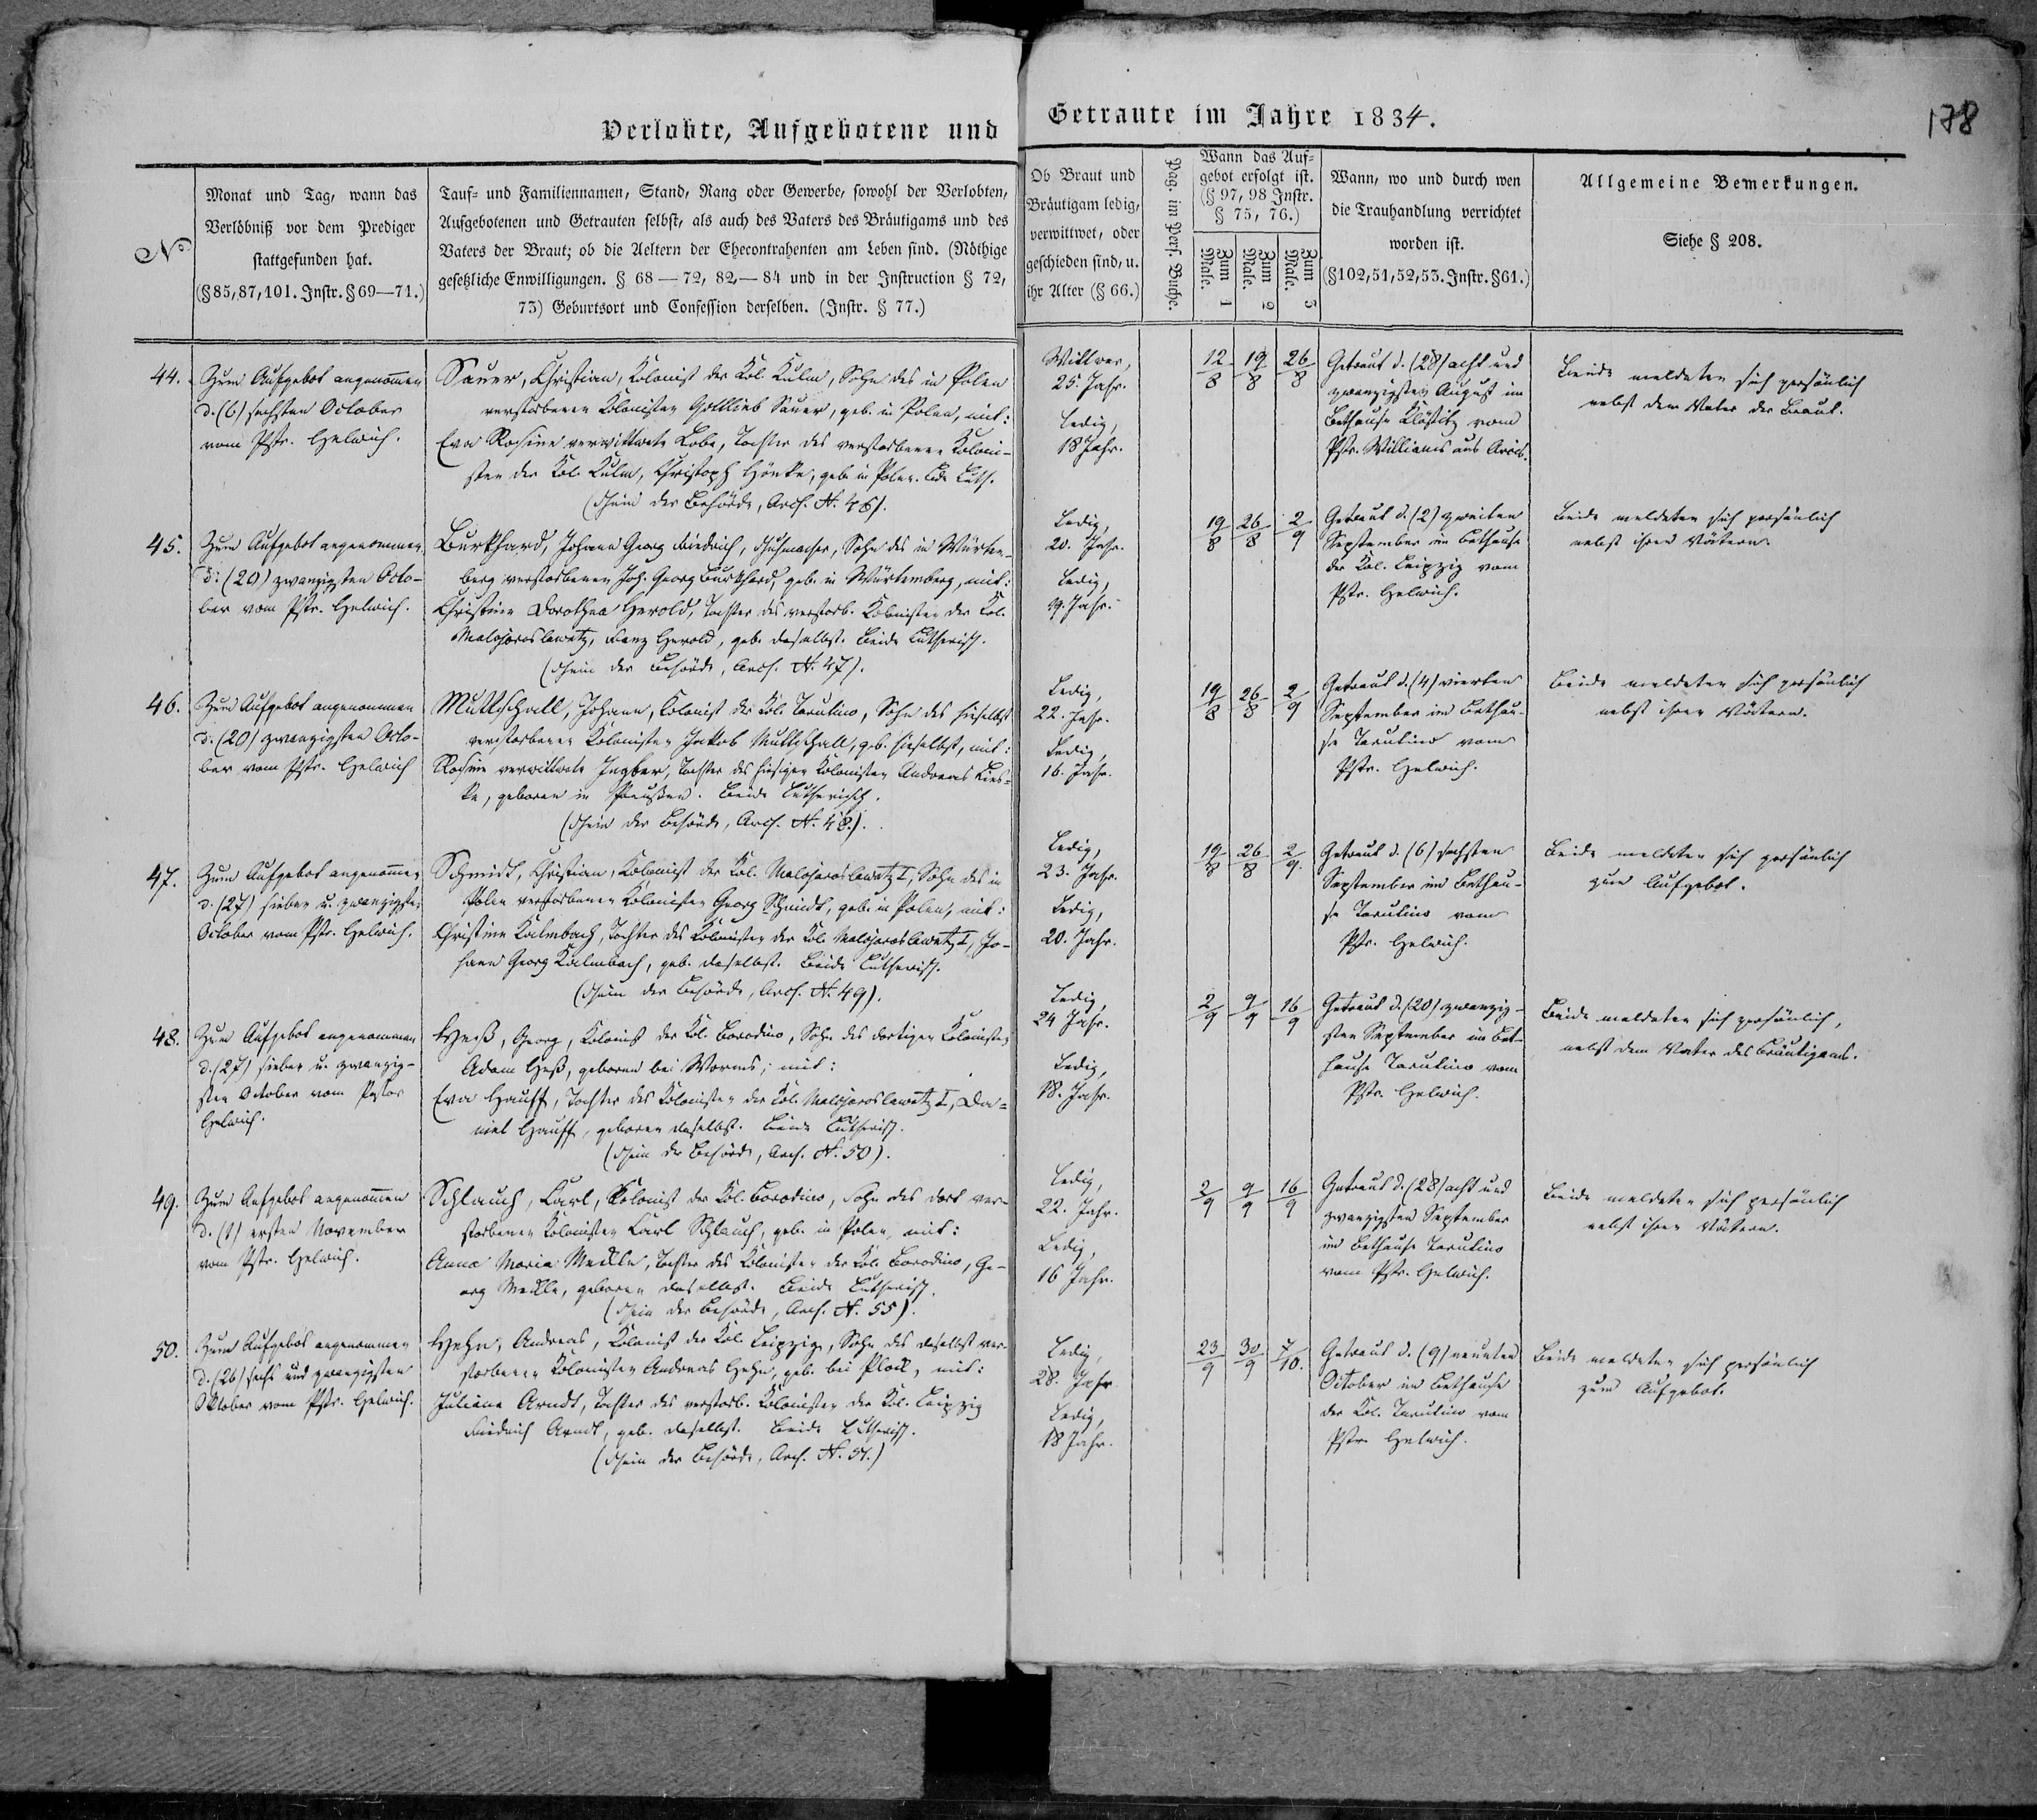 Verlobte, Aufgebotene und Getraute im Jahre 1834.
178
No
Monat und Tag, wann das
Verlöbniß vor dem Prediger
stattgefunden hat.
(§85,87,101. Instr. §69—71.)
Tauf- und Familiennamen, Stand, Rang oder Gewerbe, sowohl der Verlobten,
Aufgebotenen und Getrauten selbst, als auch des Vaters des Bräutigams und des
Vaters der Braut; ob die Aeltern der Ehecontrahenten am Leben sind. (Nöthige
gesetzliche Enwilligungen. § 68—72, 82,—84 und in der Instruction § 72,
73) Geburtsort und Confession derselben. (Instr. § 77.)
Ob Braut und
Bräutigam ledig,
verwittwet, oder
geschieden sind, u.
ihr Alter (§ 66.)
Pag. im Pers. Buche.
Wann das Auf-
gebot erfolgt ist.
(§ 97, 98 Instr.
§ 75, 76.)
Zum 1 Male.
Zum 2 Male.
Zum 3 Male.
Wann, wo und durch wen
die Trauhandlung verrichtet
worden ist.
(§102,51,52,53. Instr. §61.)
Allgemeine Bemerkungen.
Siehe § 208.
44.
Zum Aufgebot angenommen
d. (6) sechsten October
vom Pstr. Helwich.
Sauer, Christian, Kolonist der Kol. Kulm, Sohn des in Polen
verstorbenen Kolonisten Gottlieb Sauer, geb. in Polen, mit:
Eva Rosine verwittwete Lobe, Tochter des verstorbenen Koloni-
sten der Kol. Kulm, Christoph Hönke, geb. in Polen. Beide Luth.
(Schein der Behörde, Arch. N. 46).
Wittwer,
25. Jahr.
Ledig,
18 Jahr.
12/8 19/8 26/8
Getraut d. (28) acht und
zwanzigsten August im
Bethause Klöstitz vom
Pstr. Williams aus Arcis.
Beide meldeten sich persönlich
nebst dem Vater der Braut.
45.
Zum Aufgebot angenommen
d: (20) zwanzigsten Octo-
ber vom Pstr. Helwich.
Burkhard, Johann Georg Friedrich, Schuhmacher, Sohn des in Würten-
berg verstorbenen Joh. Georg Burkhard, geb. in Würtemberg, mit:
Christine Dorothea Herold, Tochter des verstorb. Kolonisten der Kol.
Malojaroslawetz, Franz Herold, geb. daselbst. Beide Lutherisch.
(Schein der Behörde, Arch. N. 47).
Ledig,
20. Jahr.
Ledig,
19. Jahr.
19/8 26/8 2/9
Getraut d. (2) zweiten
September im Bethause
der Kol. Leipzig vom
Pstr. Helwich.
Beide meldeten sich persönlich
nebst ihren Vätern.
46.
Zum Aufgebot angenommen
d: (20) zwanzigsten Octo-
ber vom Pstr. Helwich
Muttschall, Johann, Kolonist der Kol. Tarutino, Sohn des hieselbst
verstorbenen Kolonisten Jakob Muttschall, geb. hieselbst, mit:
Rosine verwittwete Ingber, Tochter des hiesigen Kolonisten Andreas Lies-
ke, geboren in Preußen. Beide Lutherisch.
(Schein der Behörde, Arch. N. 48.).
Ledig,
22. Jahr.
Ledig,
16. Jahr.
19/8 26/8 2/9
Getraut d. (4) vierten
September im Bethau-
se Tarutino vom
Pstr. Helwich.
Beide meldeten sich persönlich
nebst ihren Vätern.
47.
Zum Aufgebot angenommen
d. (27) sieben u. zwanzigsten
October vom Pstr. Helwich.
Schmidt, Christian, Kolonist der Kol. Malojaroslawetz I, Sohn des in
Polen verstorbenen Kolonisten Georg Schmidt, geb. in Polen, mit:
Christine Kalmbach, Tochter des Kolonisten der Kol. Malojaroslawetz I, Jo-
hann Georg Kalmbach, geb. daselbst. Beide Lutherisch.
(Schein der Behörde, Arch. N. 49).
Ledig,
23. Jahr.
Ledig,
20. Jahr.
19/8 26/8 2/9.
Getraut d. (6) sechsten
September im Bethau-
se Tarutino vom
Pstr. Helwich.
Beide meldeten sich persönlich
zum Aufgebot.
48.
Zum Aufgebot angenommen
d. (27) sieben u. zwanzig-
sten October vom Pastor
Helwich.
Heß, Georg, Kolonist der Kol. Borodino, Sohn des dortigen Kolonisten
Adam Heß, geboren bei Worms; mit:
Eva Hauff, Tochter des Kolonisten der Kol. Malojaroslawetz I, Da-
niel Hauff, geboren daselbst. Beide Lutherisch.
(Schein der Behörde, Arch. N. 50).
Ledig,
24 Jahr.
Ledig,
18. Jahr.
2/9 9/9 16/9
Getraut d. (20) zwanzig-
sten September im Bet-
hause Tarutino vom
Pstr. Helwich.
Beide meldeten sich persönlich,
nebst dem Vater des Bräutigams.
49.
Zum Aufgebot angenommen
d. (1) ersten November
vom Pstr. Helwich.
Schlauch, Karl, Kolonist der Kol. Borodino, Sohn des dort ver-
storbenen Kolonisten Karl Schlauch, geb. in Polen, mit:
Anna Maria Meckle, Tochter des Kolonisten der Kol. Borodino, Ge-
org Meckle, geboren daselbst. Beide Lutherisch.
(Schein der Behörde, Arch. N. 55).
Ledig,
22. Jahr.
Ledig,
16 Jahr.
2/9 9/9 16/9
Getraut d. (28) acht und
zwanzigsten September
im Bethause Tarutino
vom Pstr. Helwich.
Beide meldeten sich persönlich
nebst ihren Vätern.
50.
Zum Aufgebot angenommen
d. (26) sechs und zwanzigsten
Oktober vom Pstr. Helwich.
Hehn, Andreas, Kolonist der Kol. Leipzig, Sohn des daselbst ver-
storbenen Kolonisten Andreas Hehn, geb. bei Plock, mit:
Juliane Arndt, Tochter des verstorb. Kolonisten der Kol. Leipzig
Friedrich Arndt, geb. daselbst. Beide Lutherisch.
(Schein der Behörde, Arch. N. 51.)
Ledig,
28. Jahr
Ledig,
18 Jahr.
23/9 30/9 7/10.
Getraut d. (9) neunten
October im Bethause
der Kol. Tarutino vom
Pstr. Helwich.
Beide meldeten sich persönlich
zum Aufgebot.